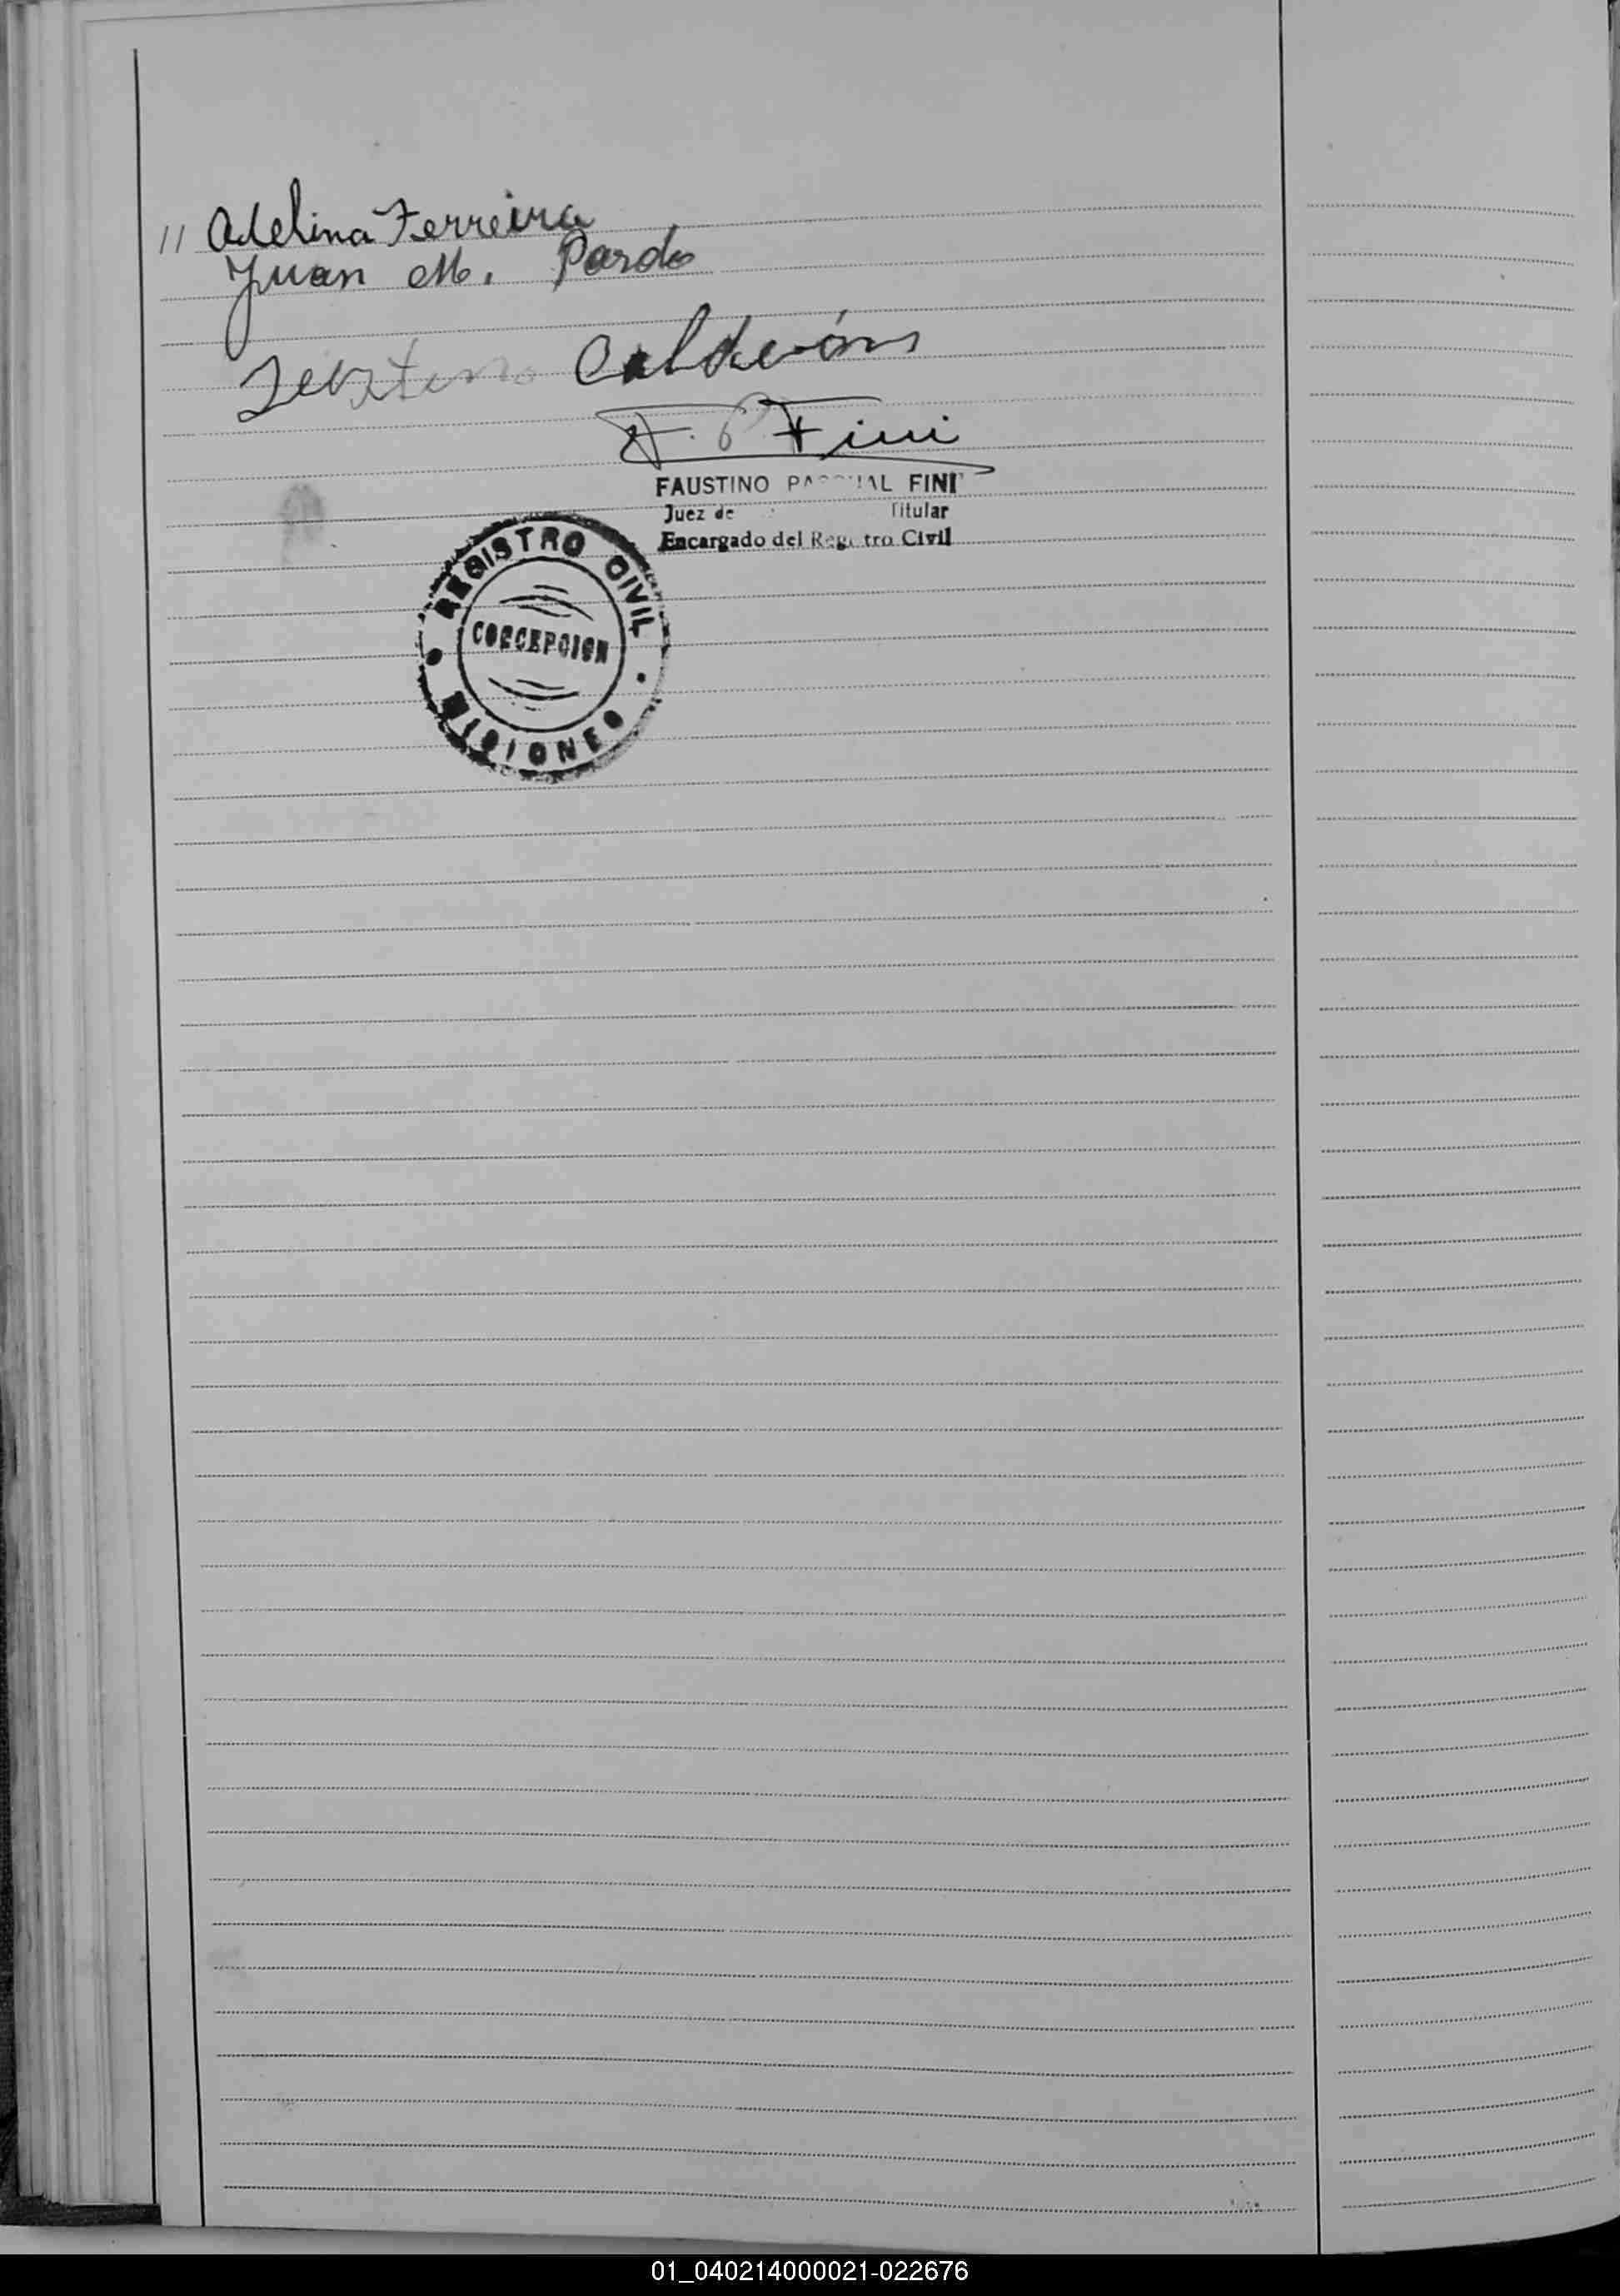 // Adelina Ferreira
Juan M. Pardo
Calderón
F. P. Fini
FAUSTINO PASCUAL FINI
Juez de Titular
Encargado del Registro Civil
REGISTRO CIVIL
CONCEPCION
MISIONES
01_040214000021-022676